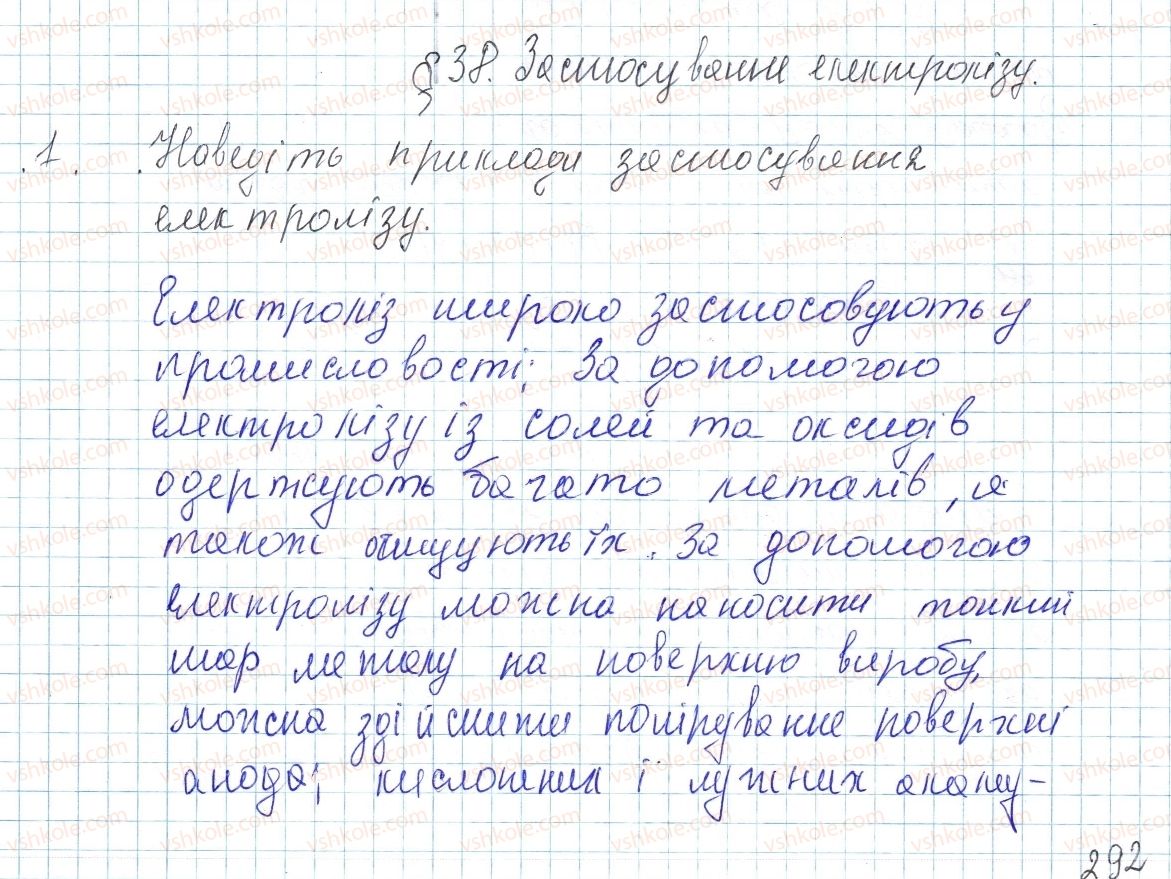 § 38. Застосування електролізу.
1. Наведіть приклади застосування
електролізу.
Електроліз широко застосовують у
промисловості; За допомогою
електролізу із солей та оксидів
одержують багато металів, а
також очищують їх. За допомогою
електролізу можна наносити тонкий
шар металу на поверхню виробу,
можна здійснити полірування поверхні
анода; кислотних і лужних акаму-
292